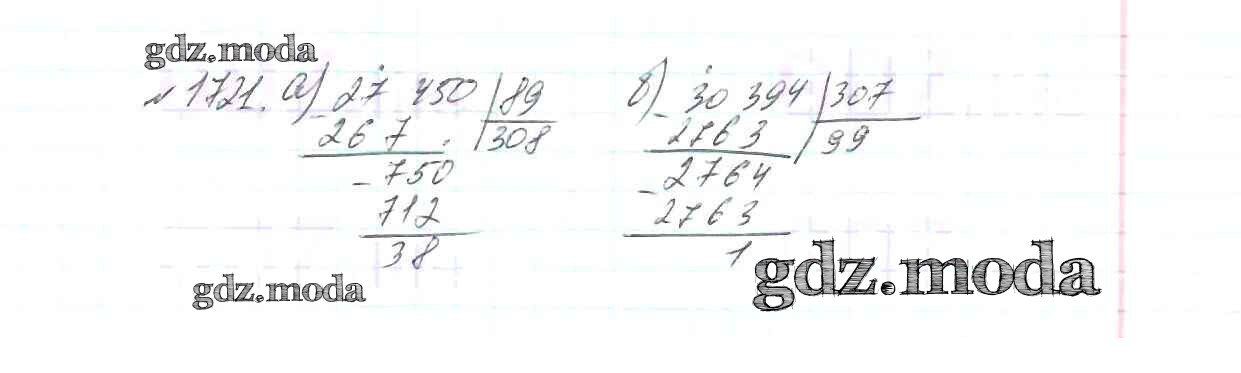 gdz.moda
№ 1721. а) 27 450 | 89 б) 30 394 | 307
- 267 308 - 2763 99
- 750 - 2764
712 2763
38 1
gdz.moda
gdz.moda